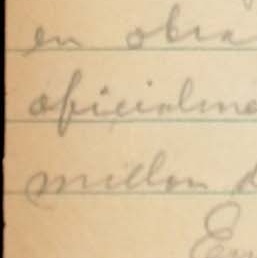 en obra
oficialme
millon d
En